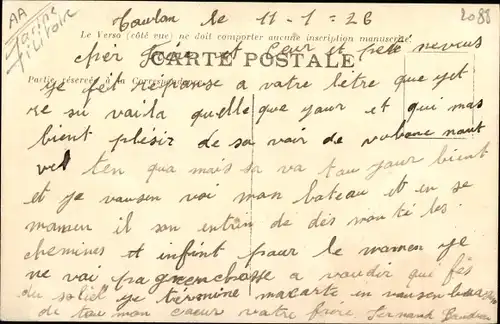 AA
Marine
Militaire
Toulon le 11-1-26
2088
Le Verso (côté vue) ne doit comporter aucune inscription manuscrite.
CARTE POSTALE
cher Frère et Seur et petit neveus
Partie réservée à la Correspondance
Ye fet réponse a votre lètre que yet
re su voila quelle que your et qui mas
bient plésir de sa voir de vo bone nout
vel ten qua mais sa va tou your bient
et ye vous en voi mon bateau et en se
momen il son entrin de dés mon té les
chemines et infint pour le momen ye
ne vai pa grenchose a voudir qui fés
du soliel ye termine ma carte en vousen
de tou mon caeur votre frère Fernand